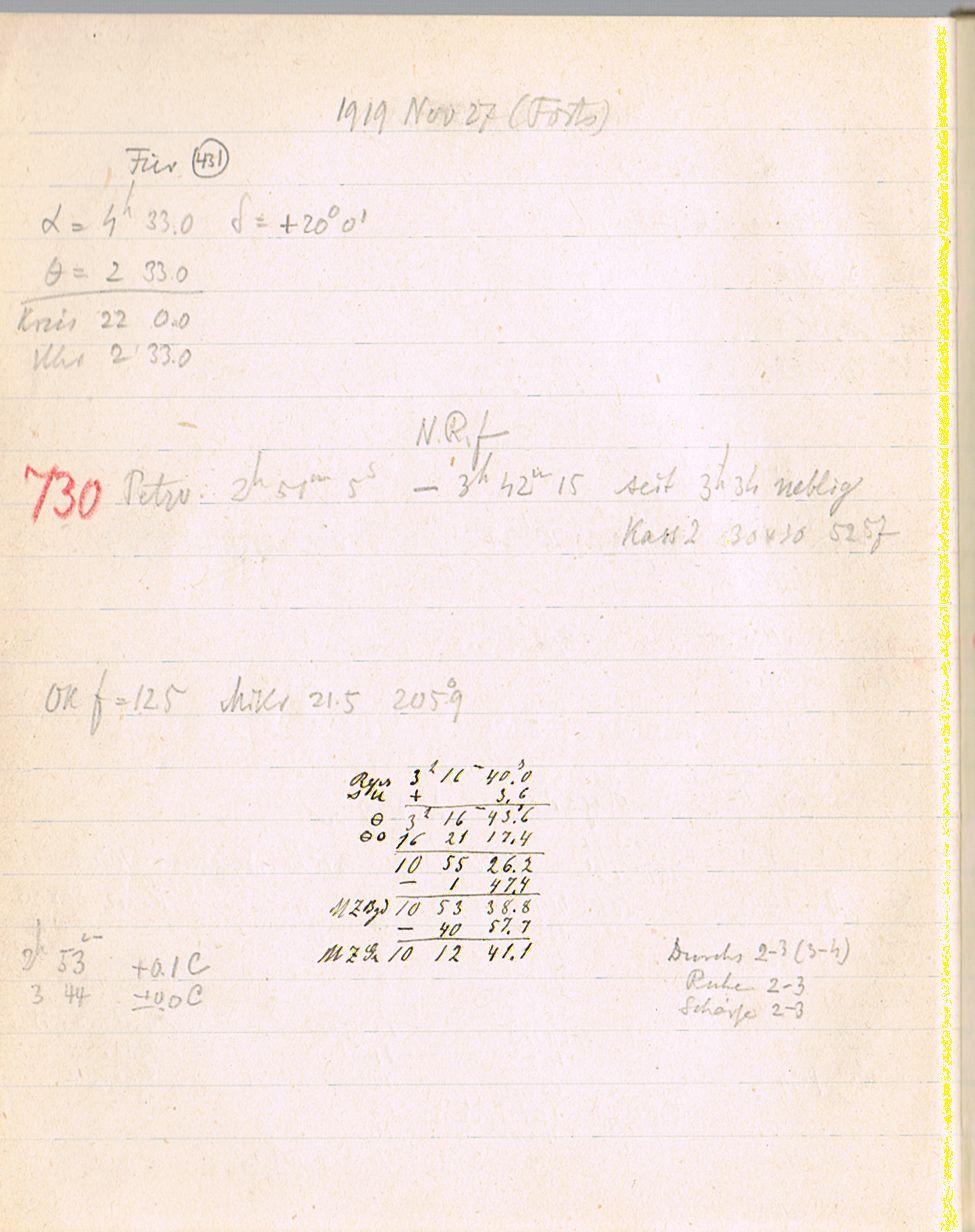 1919 Nov 27 (Forts)
Für (431)
α = 4ʰ 33.0 δ = +20° 0'
θ = 2 33.0
Kreis 22 0.0
Uhr 2 33.0
N.R.f
730 Petzv. 2ʰ 51ᵐ 5ˢ – 3ʰ 42ᵐ 15 seit 3ʰ 34 neblig
Kass 2 30x30
OR f = 125 Mikr 21.5 205°.9
3ʰ 16ᵐ 40.ˢ0
u + 3.6
θ 3ʰ 16ᵐ 43.ˢ6
θ0 16 21 17.4
10 55 26.2
– 1 47.4
MZBgd 10 53 38.8
– 40 57.7
MZGr 10 12 41.1
2ʰ 53ᵐ +0.1 C
3 44 ±0.0 C
Durchs 2-3 (3-4)
Ruhe 2-3
Schärfe 2-3